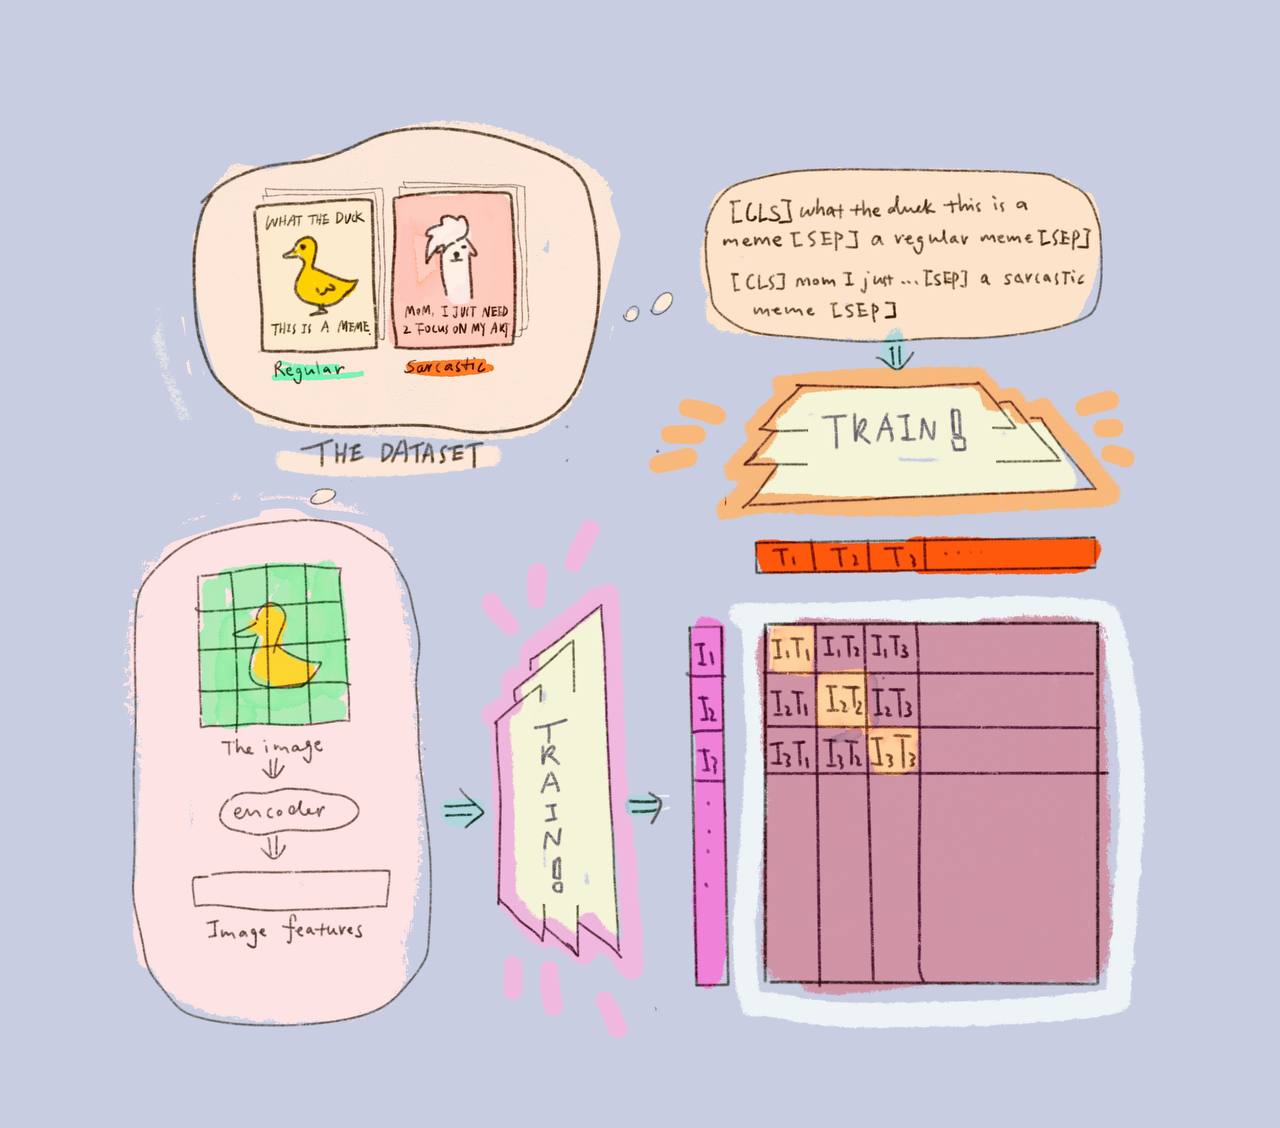 WHAT THE DUCK
THIS IS A MEME
Regular
MOM, I JUST NEED
2 FOCUS ON MY ART
Sarcastic
THE DATASET
[CLS] what the duck this is a
meme [SEP] a regular meme [SEP]
[CLS] mom I just ... [SEP] a sarcastic
meme [SEP]
TRAIN!
The image
encoder
Image features
TRAIN!
T1 T2 T3 .....
I1
I2
I3
.....
I1T1 I1T2 I1T3
I2T1 I2T2 I2T3
I3T1 I3T2 I3T3